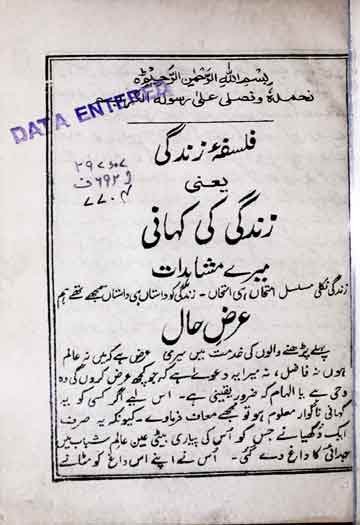 بسم الله الرحمن الرحیم
نحمدہٗ و نصلی علیٰ رسولہ الکریم
DATA ENTERED
فلسفۂ زندگی
یعنی
زندگی کی کہانی
میرے مشاہدات
زندگی نکلی مسلسل امتحاں ہی امتحاں - زندگی کو داستاں ہی داستاں سمجھے تھے ہم
عرضِ حال
پہلے پڑھنے والوں کی خدمت میں میری عرض ہے کہ میں نہ عالم
ہوں نہ فاضل ، نہ میرا یہ دعویٰ ہے کہ جو کچھ عرض کروں گی وہ
وحی ہے یا الہام کہ ضرور یقینی ہے - اس لیے اگر کسی کو یہ
کہانی ناگوار معلوم ہو تو مجھے معاف فرماوے - کیونکہ یہ صرف
ایک دُکھیا نے جس کو اُس کی پیاری بیٹی عین عالم شباب میں
جدائی کا داغ دے گئی - اُس نے اپنے اس داغ کو مٹانے